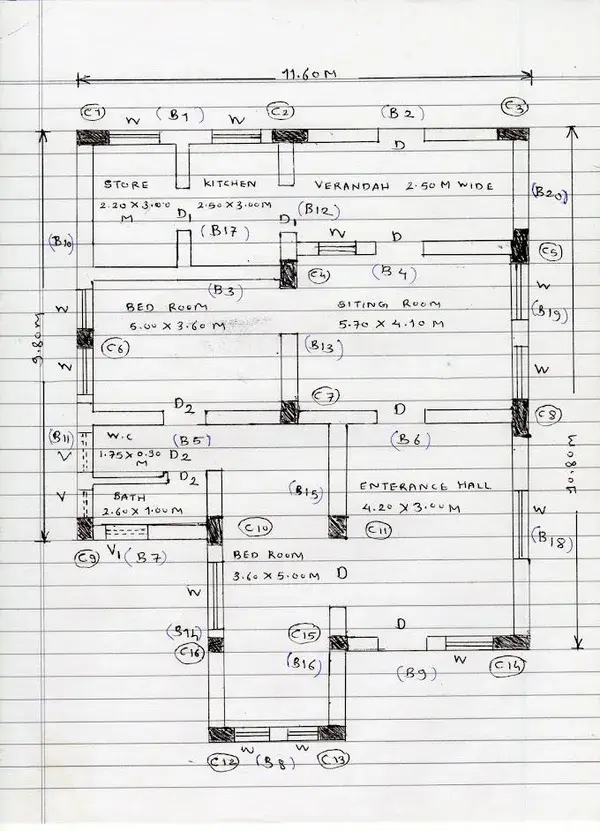 11.60M
C1 W (B1) W C2 (B2) C3
D
STORE KITCHEN VERANDAH 2.50 M WIDE
2.20 X 3.00 2.50 X 3.00M (B20)
M D1 D1 (B12)
(B17)
(B10) W D C5
(B3) C4 (B4)
W BED ROOM SITING ROOM W
5.00 X 3.60 M 5.70 X 4.10 M (B19)
9.80M C6 (B13)
W W
D2 C7 D C8
(B11) W.C (B5) (B6)
V 1.75 X 0.90 D2
M
D2 (B15) ENTERANCE HALL
V BATH 4.20 X 3.00 M W
2.60 X 1.00M C10 C11
C9 V1 (B7) BED ROOM (B18)
3.60 X 5.00M D
W
(B14) C15 D
C16 (B16) (B9) W C14
W W
C12 (B8) C13